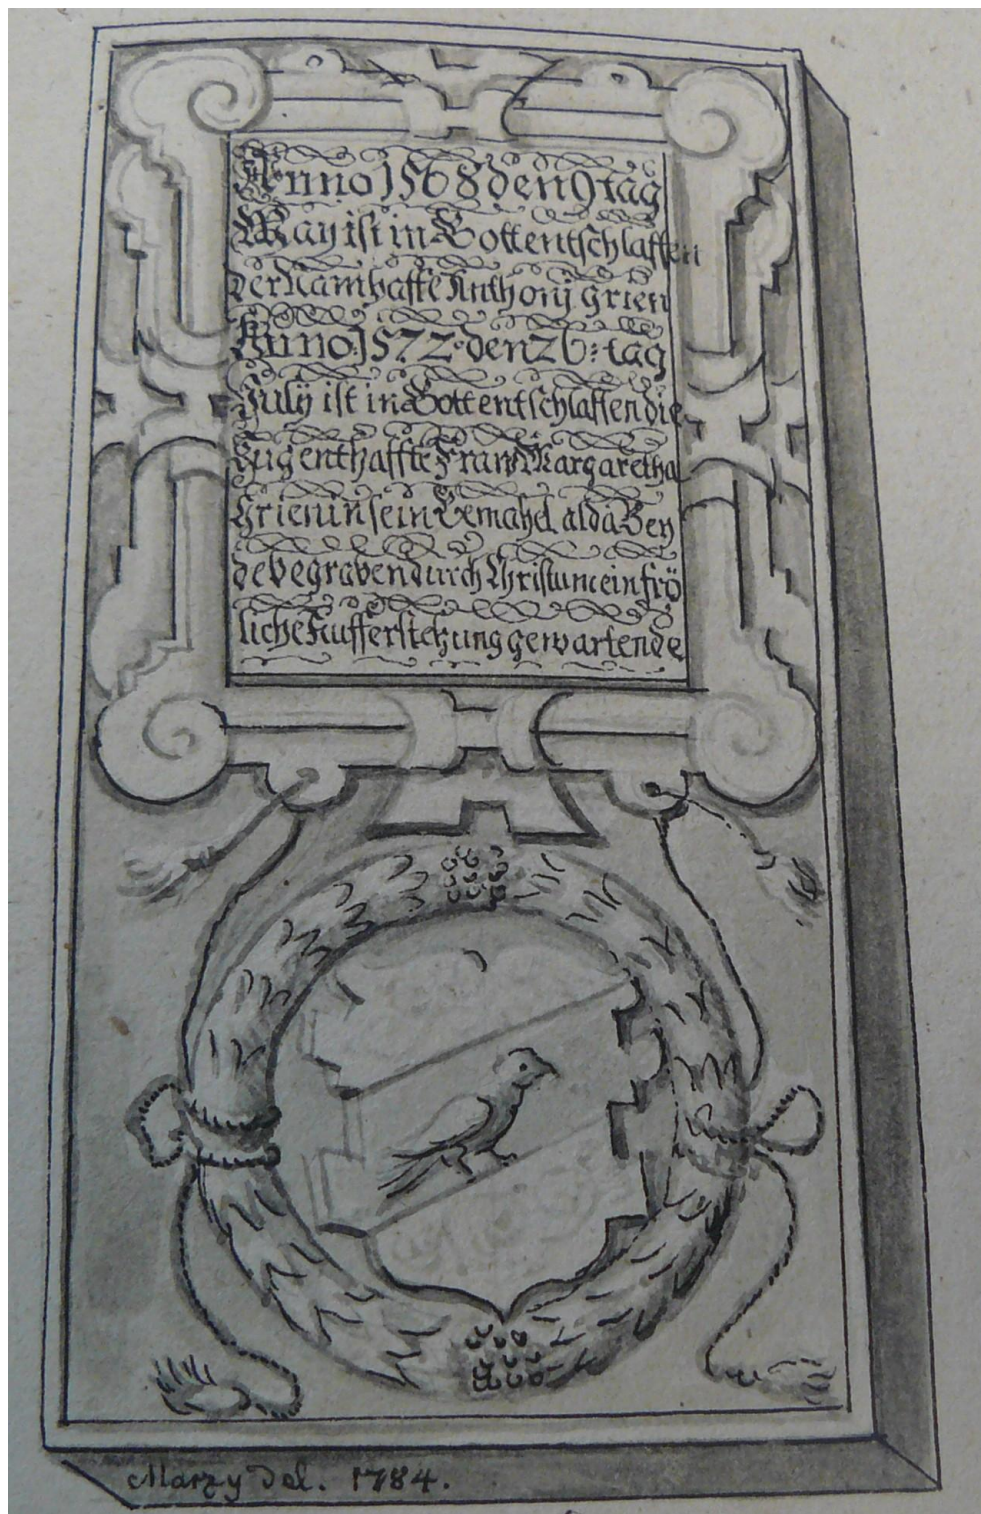 Anno 1568 den 9 tag
May ist in Gott entschlaffen
der Namhaffte Anthonj Grien
Anno: 1572. den 26: tag
July ist in Gott entschlaffen die
Tugenthaffte Fraw Margaretha
Grienin sein Gemahel alda Bey
de begraben durch Christum ein frö
liche Aufferstehung gewartende
Marzy del. 1784.